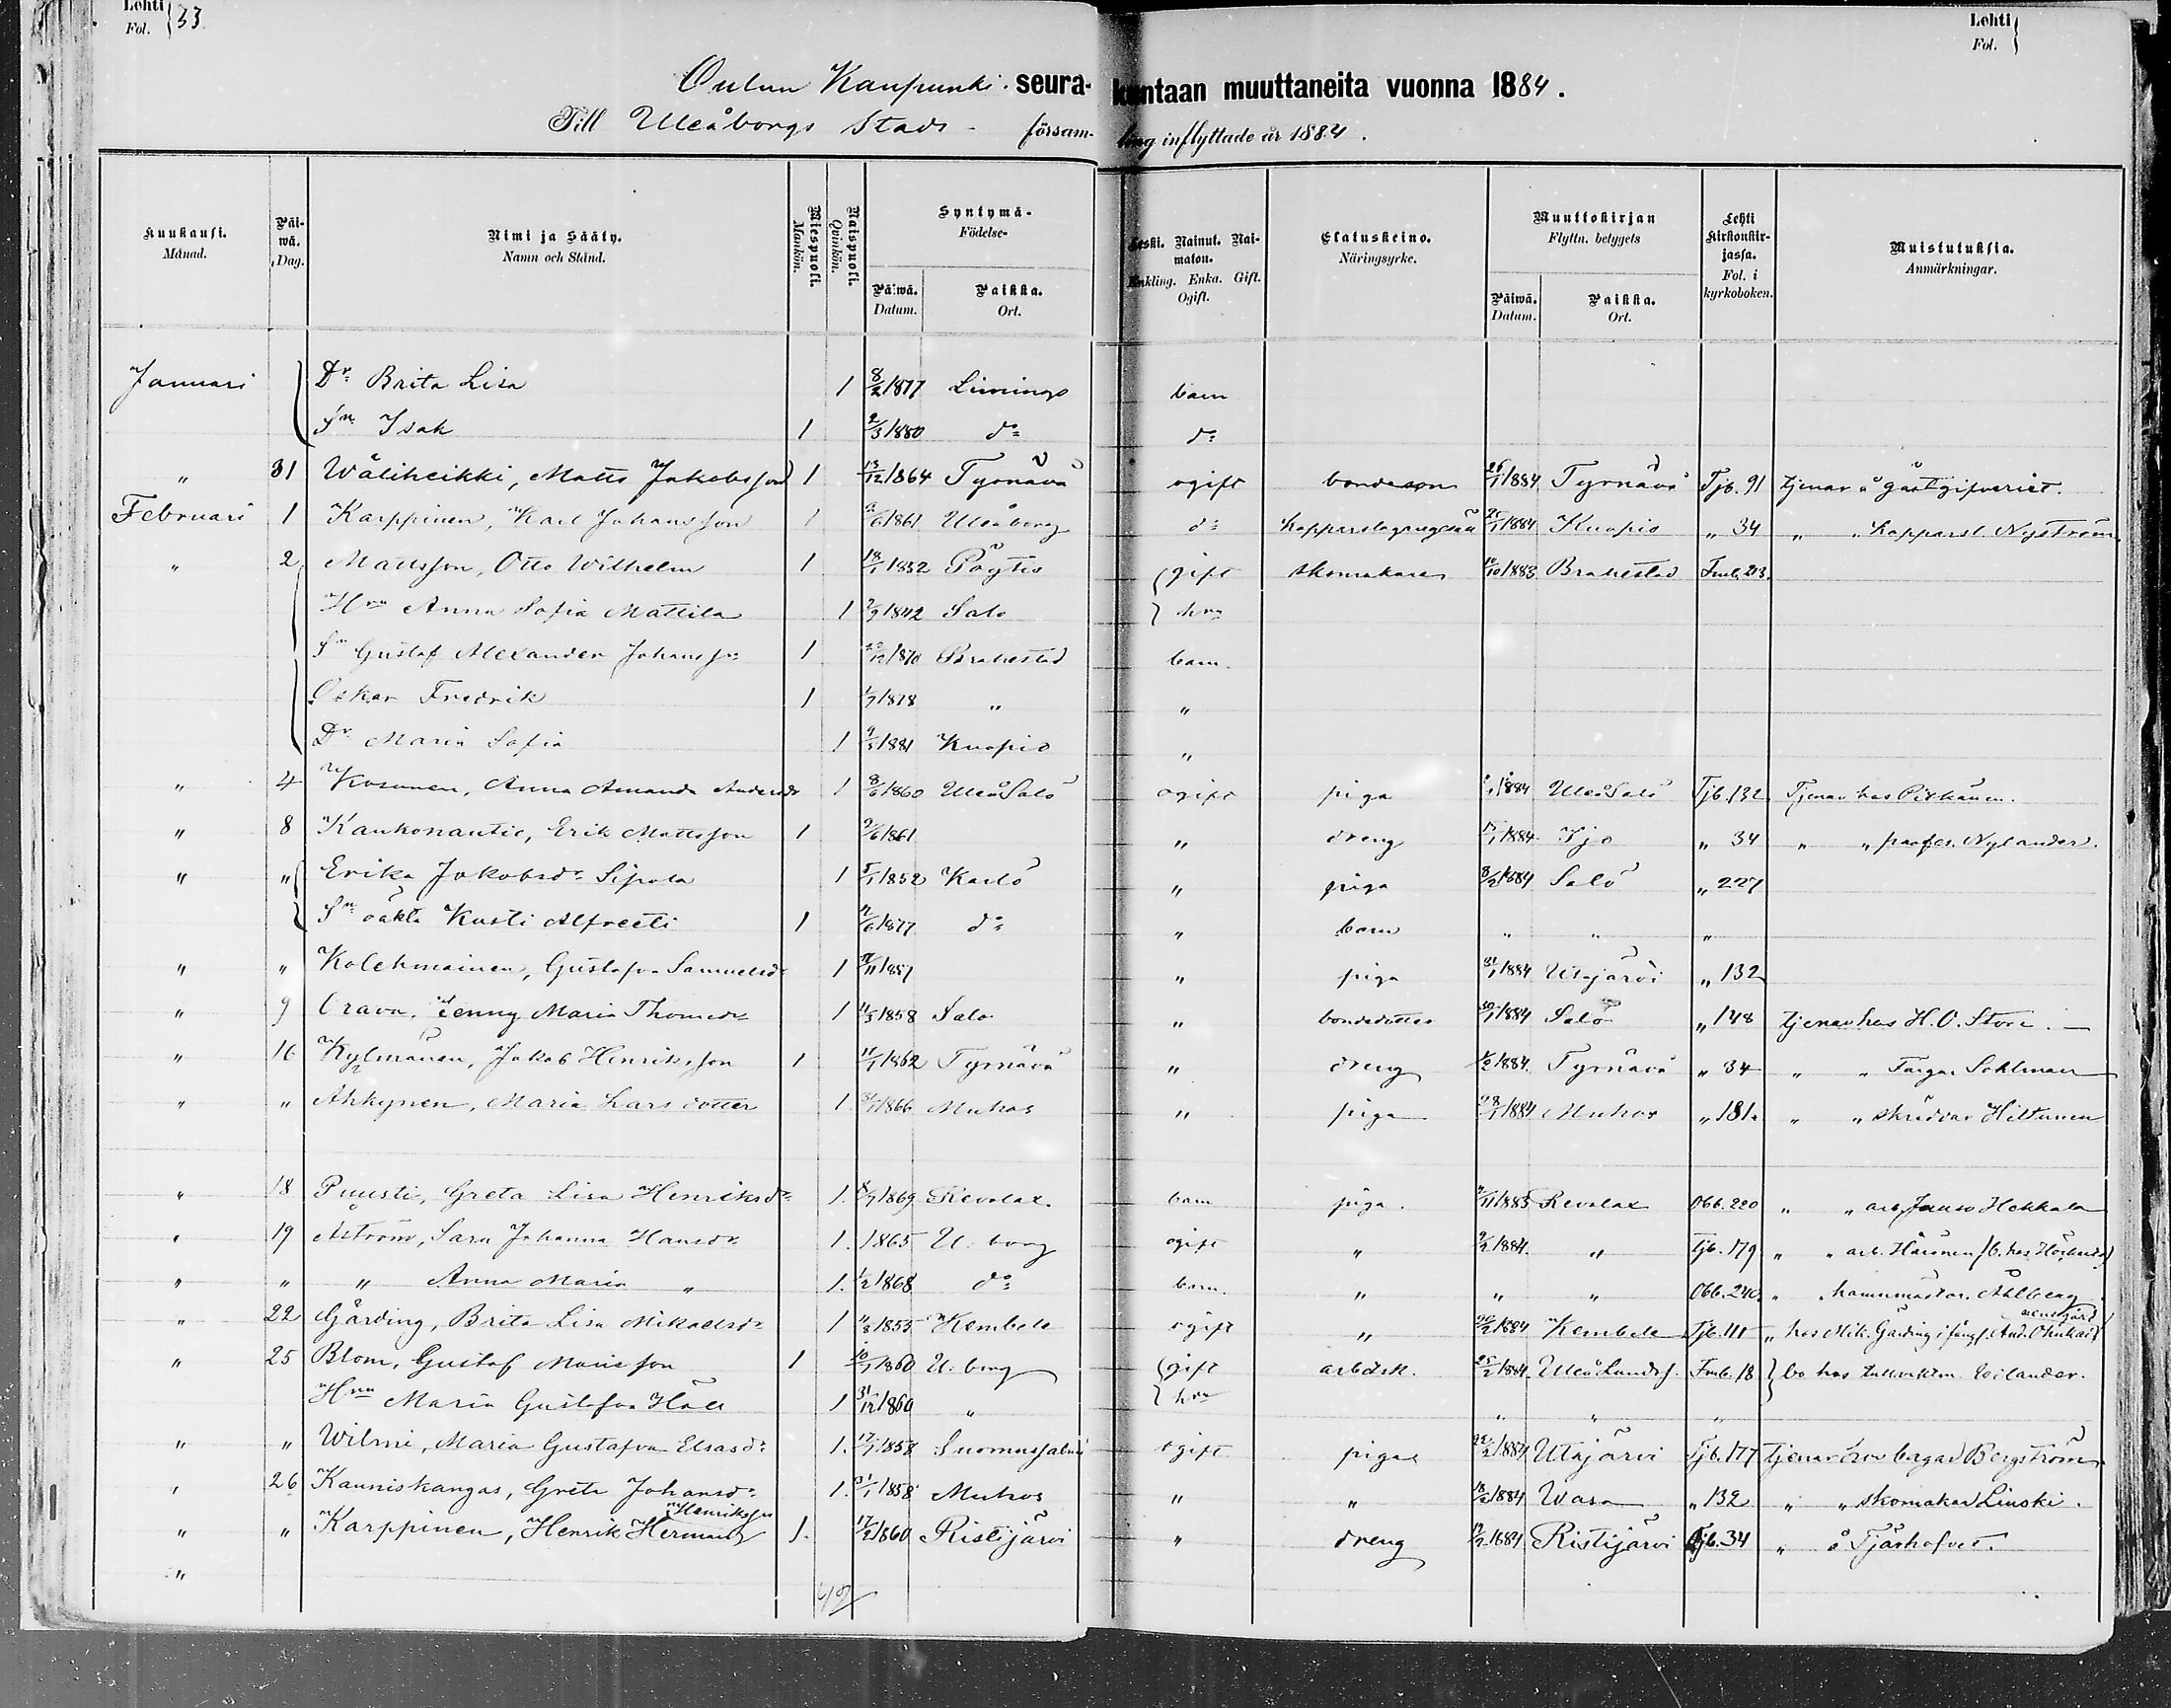 Lehti Fol. } 33.
Lehti Fol. }
Oulun Kaupunki seurakuntaan muuttaneita vuonna 1884.
Till Uleåborgs Stads församling inflyttade år 1884.
Kuukausi. Månad. Päiwä. Dag. Nimi ja Sääty. Namn och Stånd. Miespuoli. Mankön. Naispuoli. Qvinkön. Syntymä- Födelse- Päiwä. Datum. Paikka. Ort. Leski. Nainut. Naimaton. Enkling. Enka. Gift. Ogift. Elatuskeino. Näringsyrke. Muuttokirjan Flyttn. betygets Päiwä. Datum. Paikka. Ort. Lehti kirkonkirjassa. Fol. i kyrkoboken. Muistutuksia. Anmärkningar.
Januari Dr Brita Lisa 1 8/2 1877 Limingo barn
Sn Isak 1 2/3 1880 do do
" 31 Wäliheikki, Matts Jakobsson 1 13/12 1864 Tyrnävä ogift bondeson 1884 Tyrnävä Tjb. 91 tjenar å gästgifveriet.
Februari 1 Karppinen, Karl Johansson 1 1861 Uleåborg do 1884 Kuopio " 34 " " kopparsl. Nyström
" 2 Mattsson, Otto Wilhelm 1 18/1 1852 Pöytis gift skomakare 1883 Brahestad Fmb. 213.
Hru Anna Sofia Mattila 1 1842 Salo hru
Sn Gustaf Alexander Johansson 1 1870 Brahestad barn.
Oskar Fredrik 1 1/7 1878 " "
Dr Maria Sofia 1 1881 Kuopio "
" 4 Kosunen, Anna Amanda Andersdr 1 8/6 1860 UleåSalo ogift piga 1884 UleåSalo Tjb. 132 Tjenar hos Pitkänen.
" 8 Kaukonautie, Erik Mattsson 1 9/6 1861 " dreng 1884 Ijo " 34 " " Nylander.
" " Erika Jakobsdr Sipola 1 1852 Karlö " piga 8/2 1884 Salo " 227
Sn oäkta Kusti Alfreeti 1 1877 do " barn " " "
" " Kolehmainen, Gustafva Samuelsdr 1 1857 " piga 31/1 1884 Utajärvi " 132
" 9 Orava, Jenny Maria Thomasdr 1 1858 Salo " bondedotter 30/1 1884 Salo " 148 tjenar hos H. O. Store.
" 16 Kylmänen, Jakob Henriksson 1 1862 Tyrnävä " dreng 1884. Tyrnävä " 34 " " Färgar Sohlman
" " Ahkynen, Maria Lars dotter 1 1866 Muhos " piga 1884 Muhos " 181. " " skräddar Hiltunen
" 18 Puusti, Greta Lisa Henriksdr 1. 1869 Revolax. barn piga. 1883 Revolax Obb. 220 " " arb. Hekkala
" 19 Åström, Sara Johanna Hansdr 1. 1865 U. borg ogift " 1884. " Tjb. 179 " " arb. Härönen
" " " Anna Maria " 1. 1/2 1868 do barn. " " " Obb. 240. " " hamnmästar. Ahlberg
" 22 Gärding, Brita Lisa Mikaelsdr 1 1855 Kembele ogift " 1884 Kembele Tjb. 111 " hos Mik. Gärding
" 25 Blom, Gustaf Mariesson 1 1860 U. borg gift arbetsk. 25/2 1884 Uleå Lands. Fmb. 18 bo hos Wilander.
Hru Maria Gustafva Häll 1 31/12 1860 " hru " " "
" " Wilmi, Maria Gustafva Eliasdr 1. 1858 Suomussalmi ogift piga 1884 Utajärvi Tjb. 177 tjenar hos Bergström
" 26 Kauniskangas, Greta Johansdr 1. 31/1 1858 Muhos " " 18/2 1884 Wasa " 132 " " skomakar Linski.
Henriksson
" " Karppinen, Henrik Herman 1. 17/2 1860 Ristijärvi " dreng 1884 Ristijärvi Tjb. 34 " å Tjärhofvet.
"